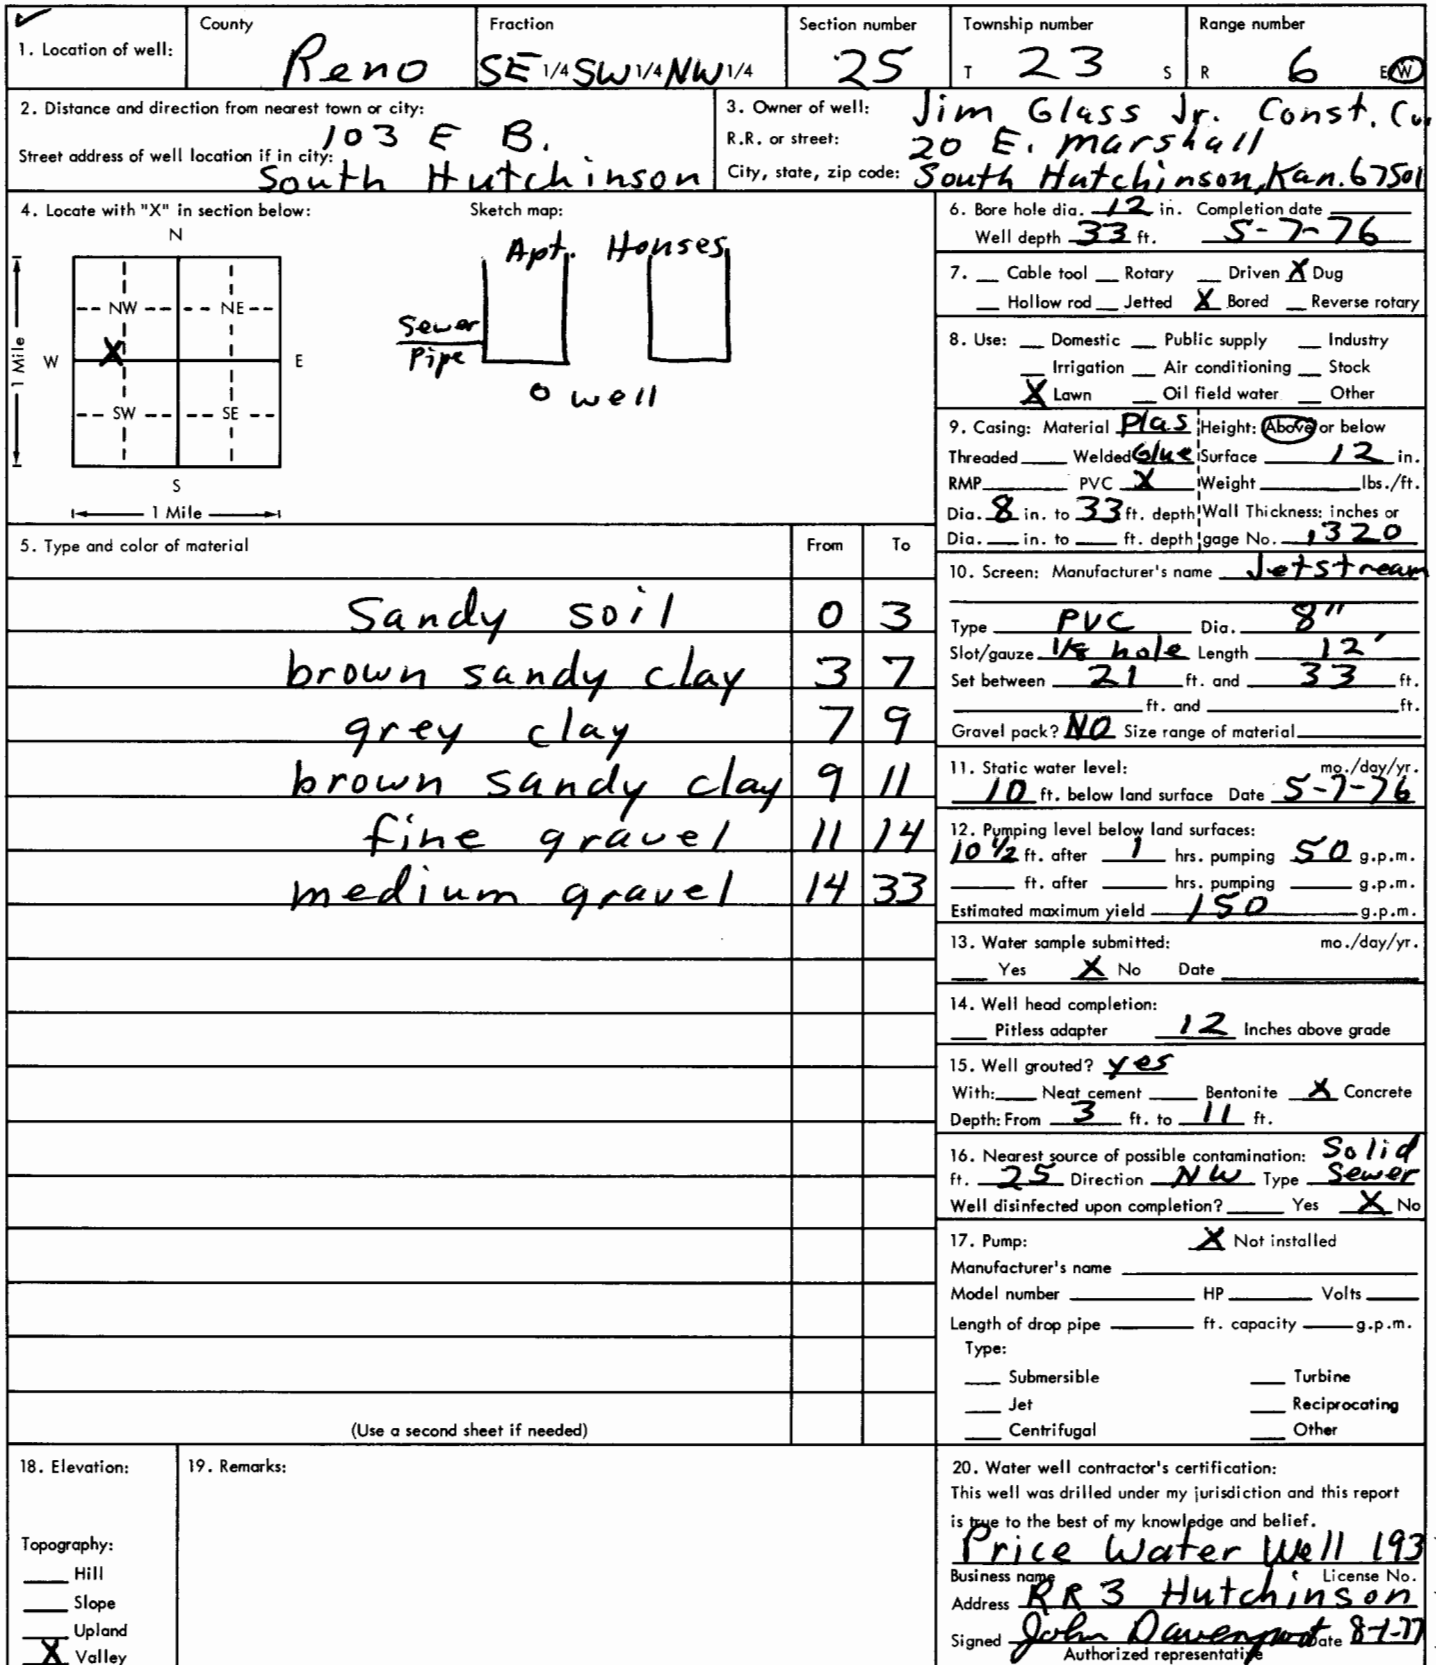 ✓
1. Location of well: County Reno Fraction SE 1/4 SW 1/4 NW 1/4 Section number 25 Township number T 23 S Range number R 6 E W
2. Distance and direction from nearest town or city: 103 E B.
Street address of well location if in city: South Hutchinson
3. Owner of well: Jim Glass Jr. Const. Co.
R.R. or street: 20 E. Marshall
City, state, zip code: South Hutchinson, Kan. 67501
4. Locate with "X" in section below:
N
NW NE
W X E
SW SE
S
1 Mile
1 Mile
Sketch map:
Apt. Houses
Sewer
Pipe
O well
5. Type and color of material From To
Sandy soil 0 3
brown sandy clay 3 7
grey clay 7 9
brown sandy clay 9 11
fine gravel 11 14
medium gravel 14 33
(Use a second sheet if needed)
6. Bore hole dia. 12 in. Completion date
Well depth 33 ft. 5-7-76
7. __ Cable tool __ Rotary __ Driven X Dug
__ Hollow rod __ Jetted X Bored __ Reverse rotary
8. Use: __ Domestic __ Public supply __ Industry
__ Irrigation __ Air conditioning __ Stock
X Lawn __ Oil field water __ Other
9. Casing: Material Plas Height: Above or below
Threaded ____ Welded Glue Surface 12 in.
RMP ____ PVC X Weight ____ lbs./ft.
Dia. 8 in. to 33 ft. depth Wall Thickness: inches or
Dia. __ in. to __ ft. depth gage No. .320
10. Screen: Manufacturer's name Jetstream
Type PVC Dia. 8"
Slot/gauze 1/8 hole Length 12'
Set between 21 ft. and 33 ft.
____ ft. and ____ ft.
Gravel pack? NO Size range of material ____
11. Static water level: mo./day/yr.
10 ft. below land surface Date 5-7-76
12. Pumping level below land surfaces:
10 1/2 ft. after 1 hrs. pumping 50 g.p.m.
____ ft. after ____ hrs. pumping ____ g.p.m.
Estimated maximum yield 150 g.p.m.
13. Water sample submitted: mo./day/yr.
__ Yes X No Date ____
14. Well head completion:
__ Pitless adapter 12 Inches above grade
15. Well grouted? yes
With: __ Neat cement __ Bentonite X Concrete
Depth: From 3 ft. to 11 ft.
16. Nearest source of possible contamination: Solid
ft. 25 Direction NW Type Sewer
Well disinfected upon completion? ____ Yes X No
17. Pump: X Not installed
Manufacturer's name ____
Model number ____ HP ____ Volts ____
Length of drop pipe ____ ft. capacity ____ g.p.m.
Type:
__ Submersible __ Turbine
__ Jet __ Reciprocating
__ Centrifugal __ Other
18. Elevation:
Topography:
__ Hill
__ Slope
__ Upland
X Valley
19. Remarks:
20. Water well contractor's certification:
This well was drilled under my jurisdiction and this report
is true to the best of my knowledge and belief.
Price Water Well 193
Business name License No.
Address RR 3 Hutchinson
Signed John Davenport Date 8-1-77
Authorized representative